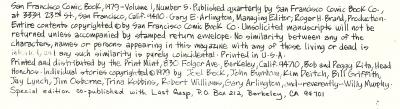 San Francisco Comic Book, 1979 - Volume 1, Number 5. Published quarterly by San Francisco Comic Book Co.,
at 3339 23rd St., San Francisco, Calif. 94110. Gary E. Arlington, Managing Editor, Roger H. Brand, Production.
Entire contents copyrighted © by San Francisco Comic Book Co. Unsolicited manuscripts will not be
returned unless accompanied by stamped return envelope. No similarity between any of the
characters, names or persons appearing in this magazine with any of those living or dead is
and any such similarity is purely coincidental. Printed in U.S.A.
Printed and distributed by the Print Mint, 830 Folger Ave., Berkeley, Calif. 94710, Bob and Peggy Rita, Head
Honchos. Individual stories copyrighted © 1979 by Joel Beck, John Burnham, Kim Deitch, Bill Griffith,
Jay Lynch, Jim Osborne, Trina Robbins, Robert Williams, Gary Arlington, and - reverently - Willy Murphy.
Special edition co-published with Last Gasp, P.O. Box 212, Berkeley, CA 94701